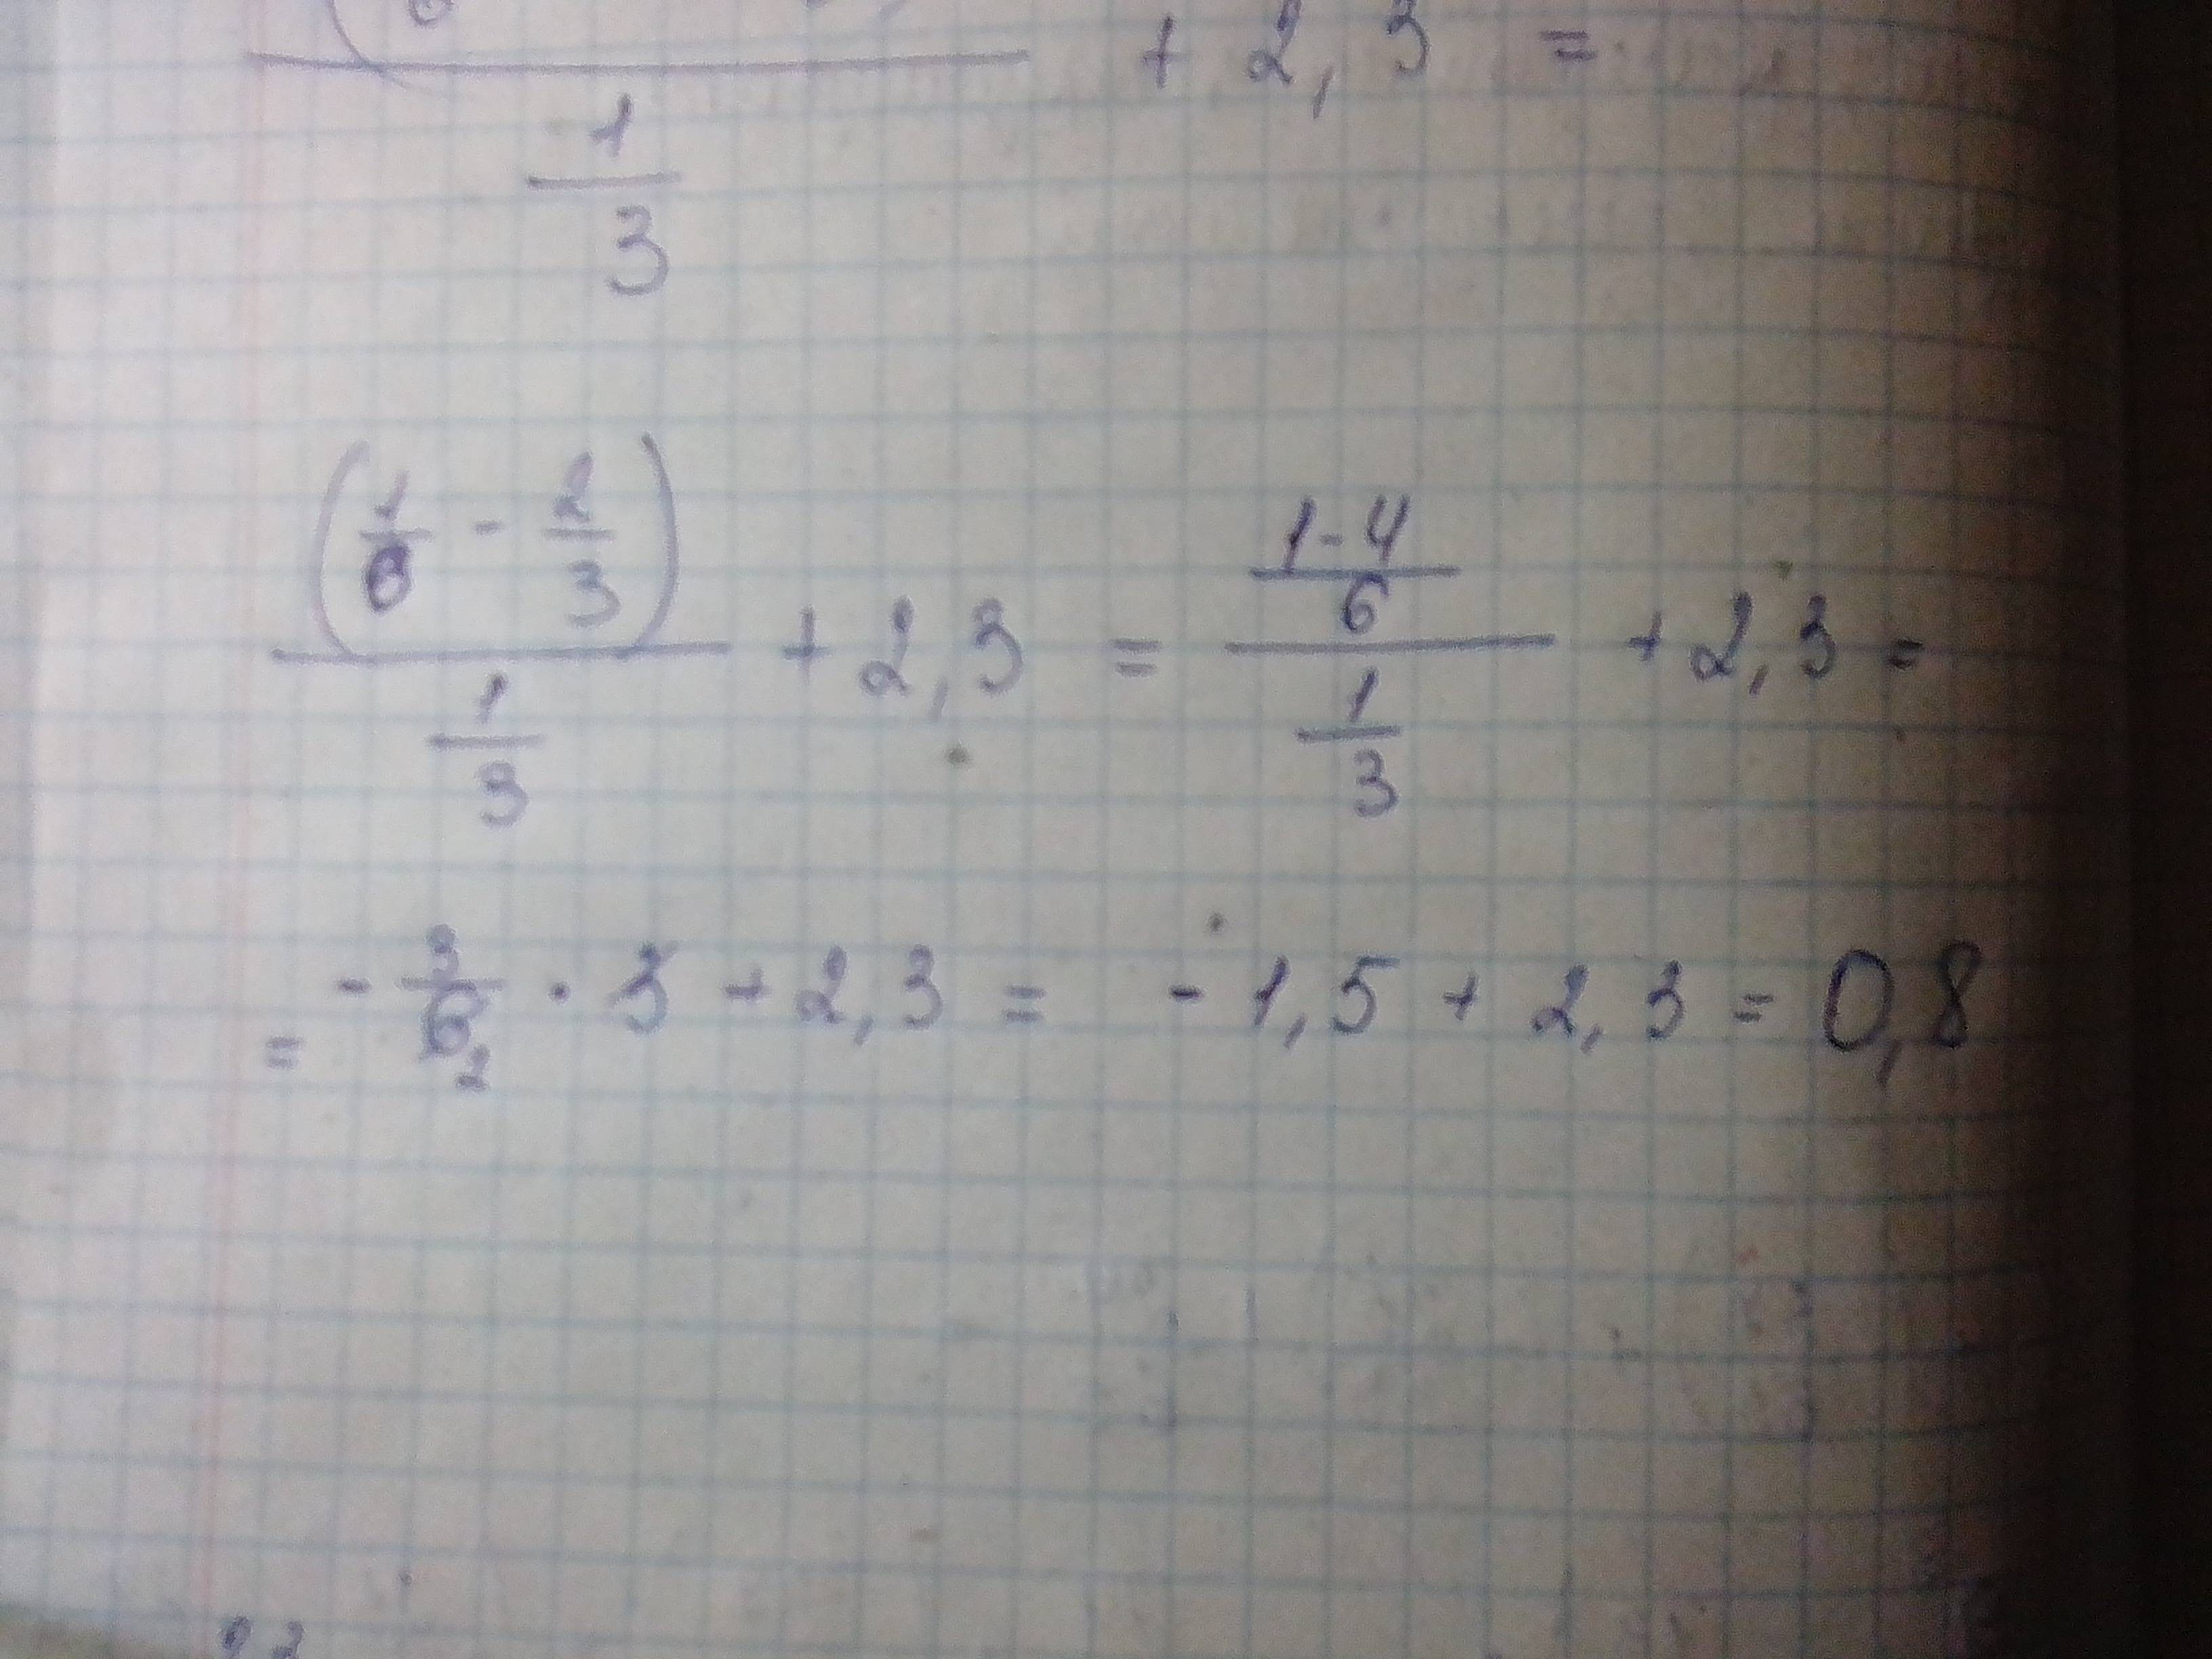 + 2,3 =
1
3
(1/6 - 2/3) / (1/3) + 2,3 = ((1-4)/6) / (1/3) + 2,3 =
= - 3/6 2 · 3 + 2,3 = - 1,5 + 2,3 = 0,8